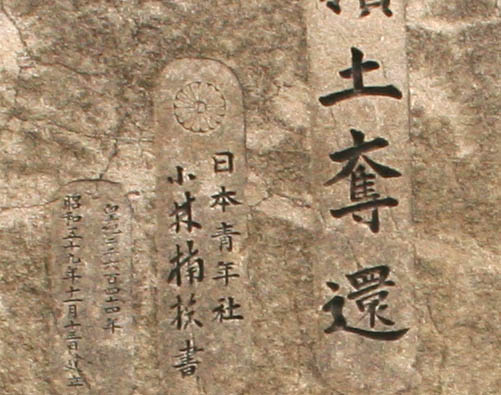 土奪還
日本青年社
小林楠扶書
皇紀二千六百四十四年
昭和五十九年 十三日建立